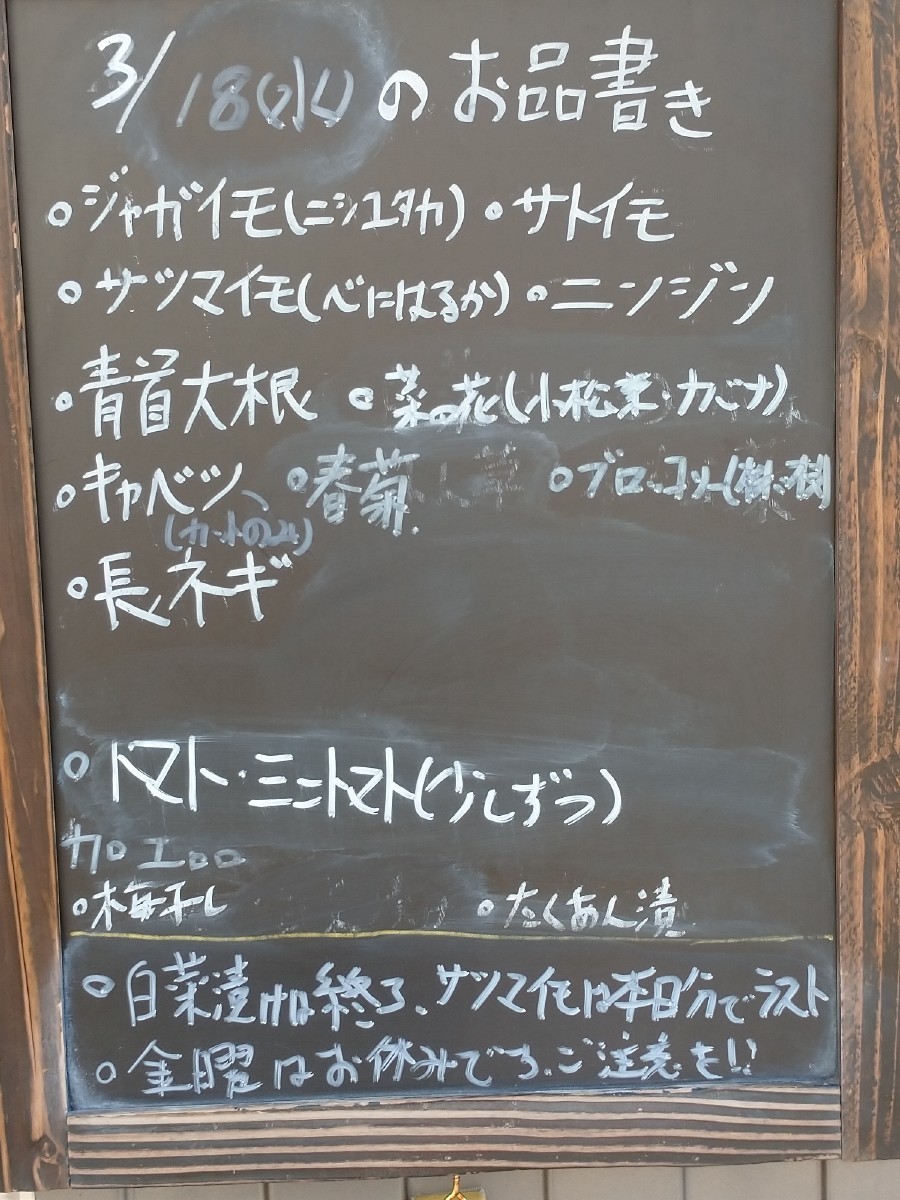 3/18(水)のお品書き
◦ジャガイモ(ニシユタカ) ◦サトイモ
◦サツマイモ(べにはるか) ◦ニンジン
◦青首大根 ◦菜の花(小松菜・カブナ)
◦キャベツ ◦春菊 ◦ブロッコリー(
(カットのみ)
◦長ネギ
◦トマト・ミニトマト(少しずつ)
加工品
◦梅干し ◦たくあん漬
◦白菜漬けは終了、サツマイモは本日分でラスト
◦金曜はお休みです、ご注意を!!